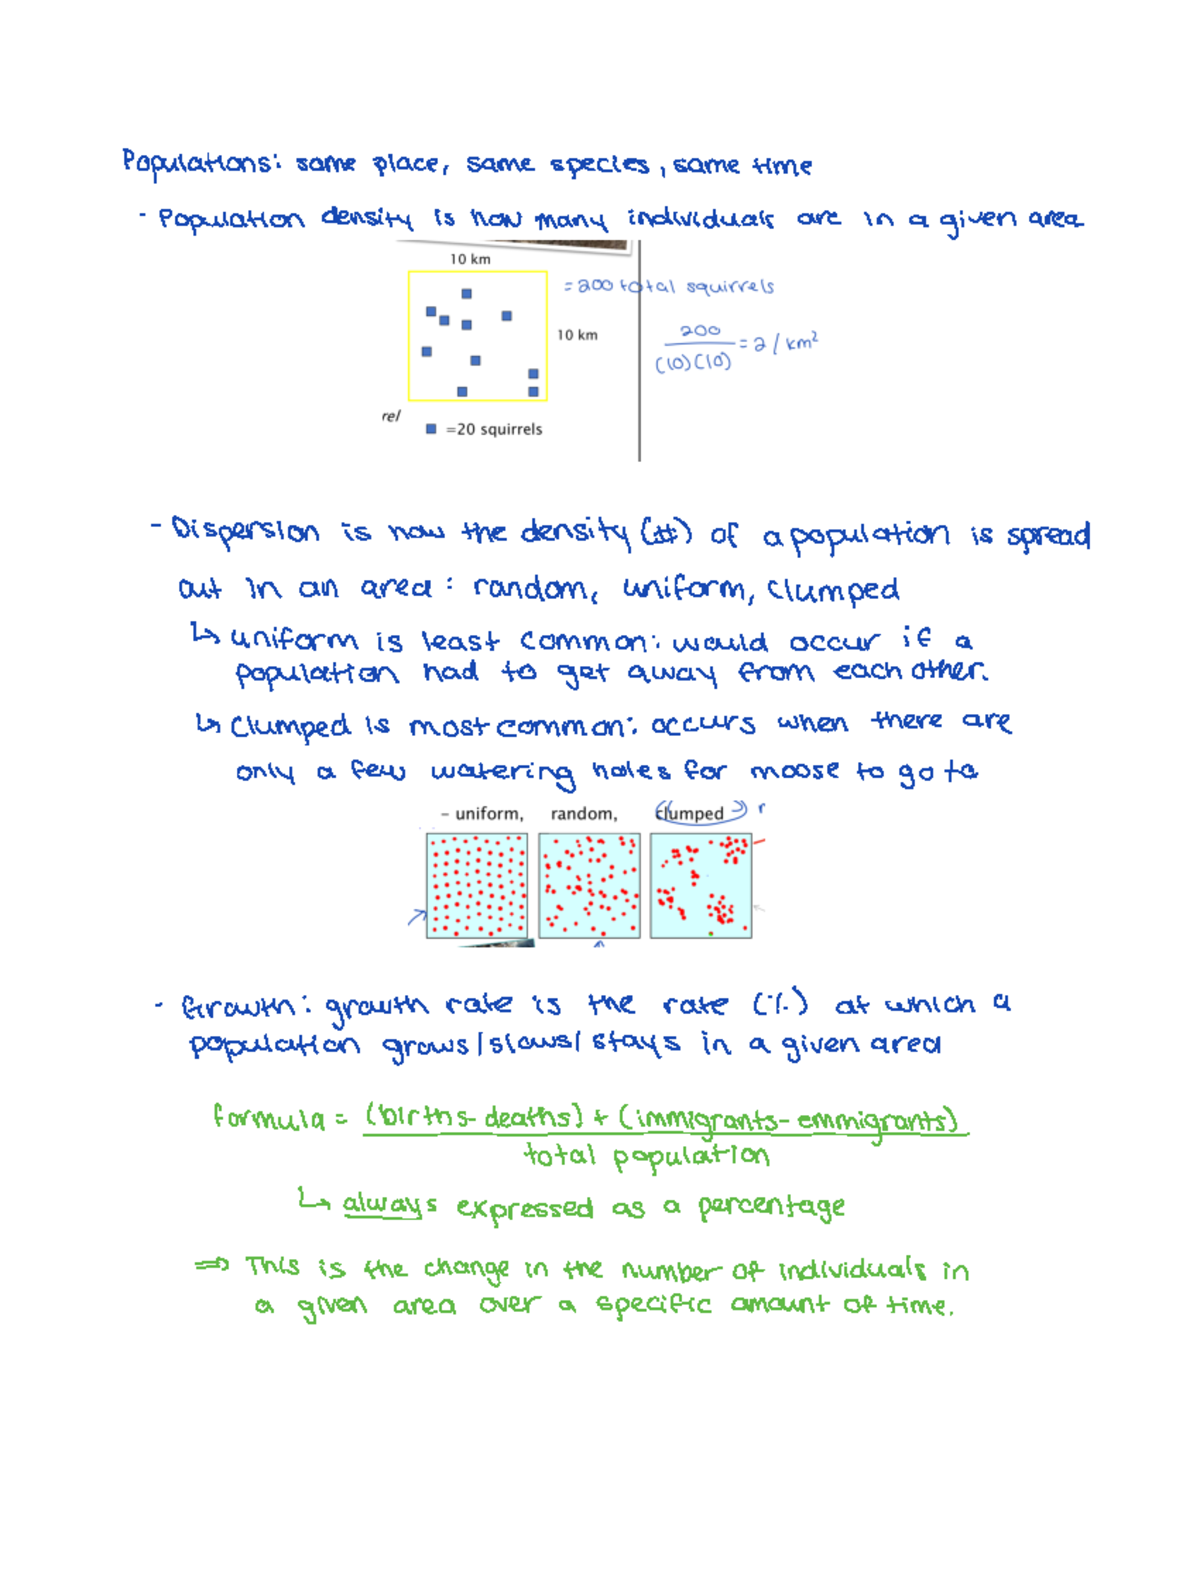 Populations: same place, same species, same time
- Population density is how many individuals are in a given area
10 km
= 200 total squirrels
10 km
200
(10)(10)
= 2 / km²
rel
=20 squirrels
- Dispersion is how the density (#) of a population is spread
out in an area: random, uniform, clumped
↳ uniform is least common: would occur if a
population had to get away from each other.
↳ Clumped is most common: occurs when there are
only a few watering holes for moose to go to
– uniform, random, clumped r
- Growth: growth rate is the rate (%) at which a
population grows/slows/stays in a given area
formula = (births-deaths) + (immigrants-emmigrants)
total population
↳ always expressed as a percentage
⇒ This is the change in the number of individuals in
a given area over a specific amount of time.